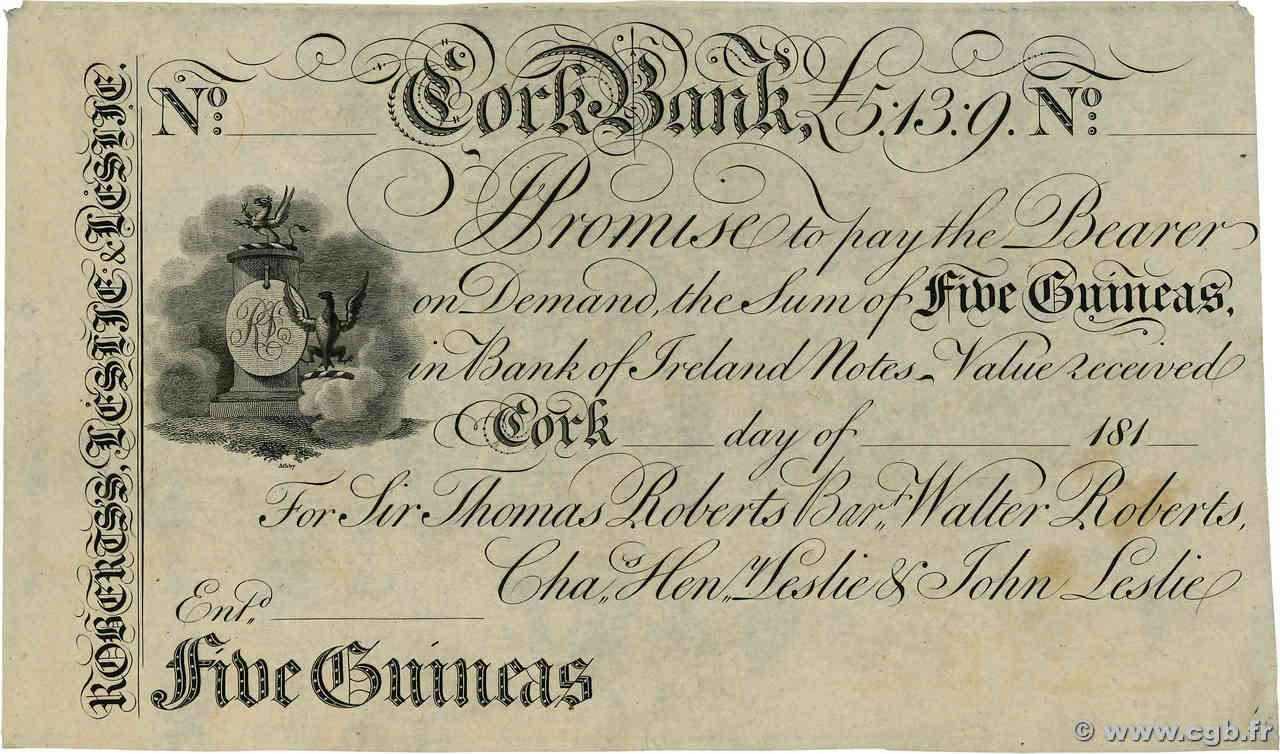 ROBERTSS, LESLIE & LESLIE.
No: Cork Bank, £5:13:9. No:
I Promise to pay the Bearer
on Demand, the Sum of Five Guineas,
in Bank of Ireland Notes_Value received
Cork ___ day of ___ 181_
For Sir Thomas Roberts Bar,,t Walter Roberts,
Cha,,s Hen,,y Leslie & John Leslie
Ent,d
Five Guineas
RLL
Ashby
© www.cgb.fr